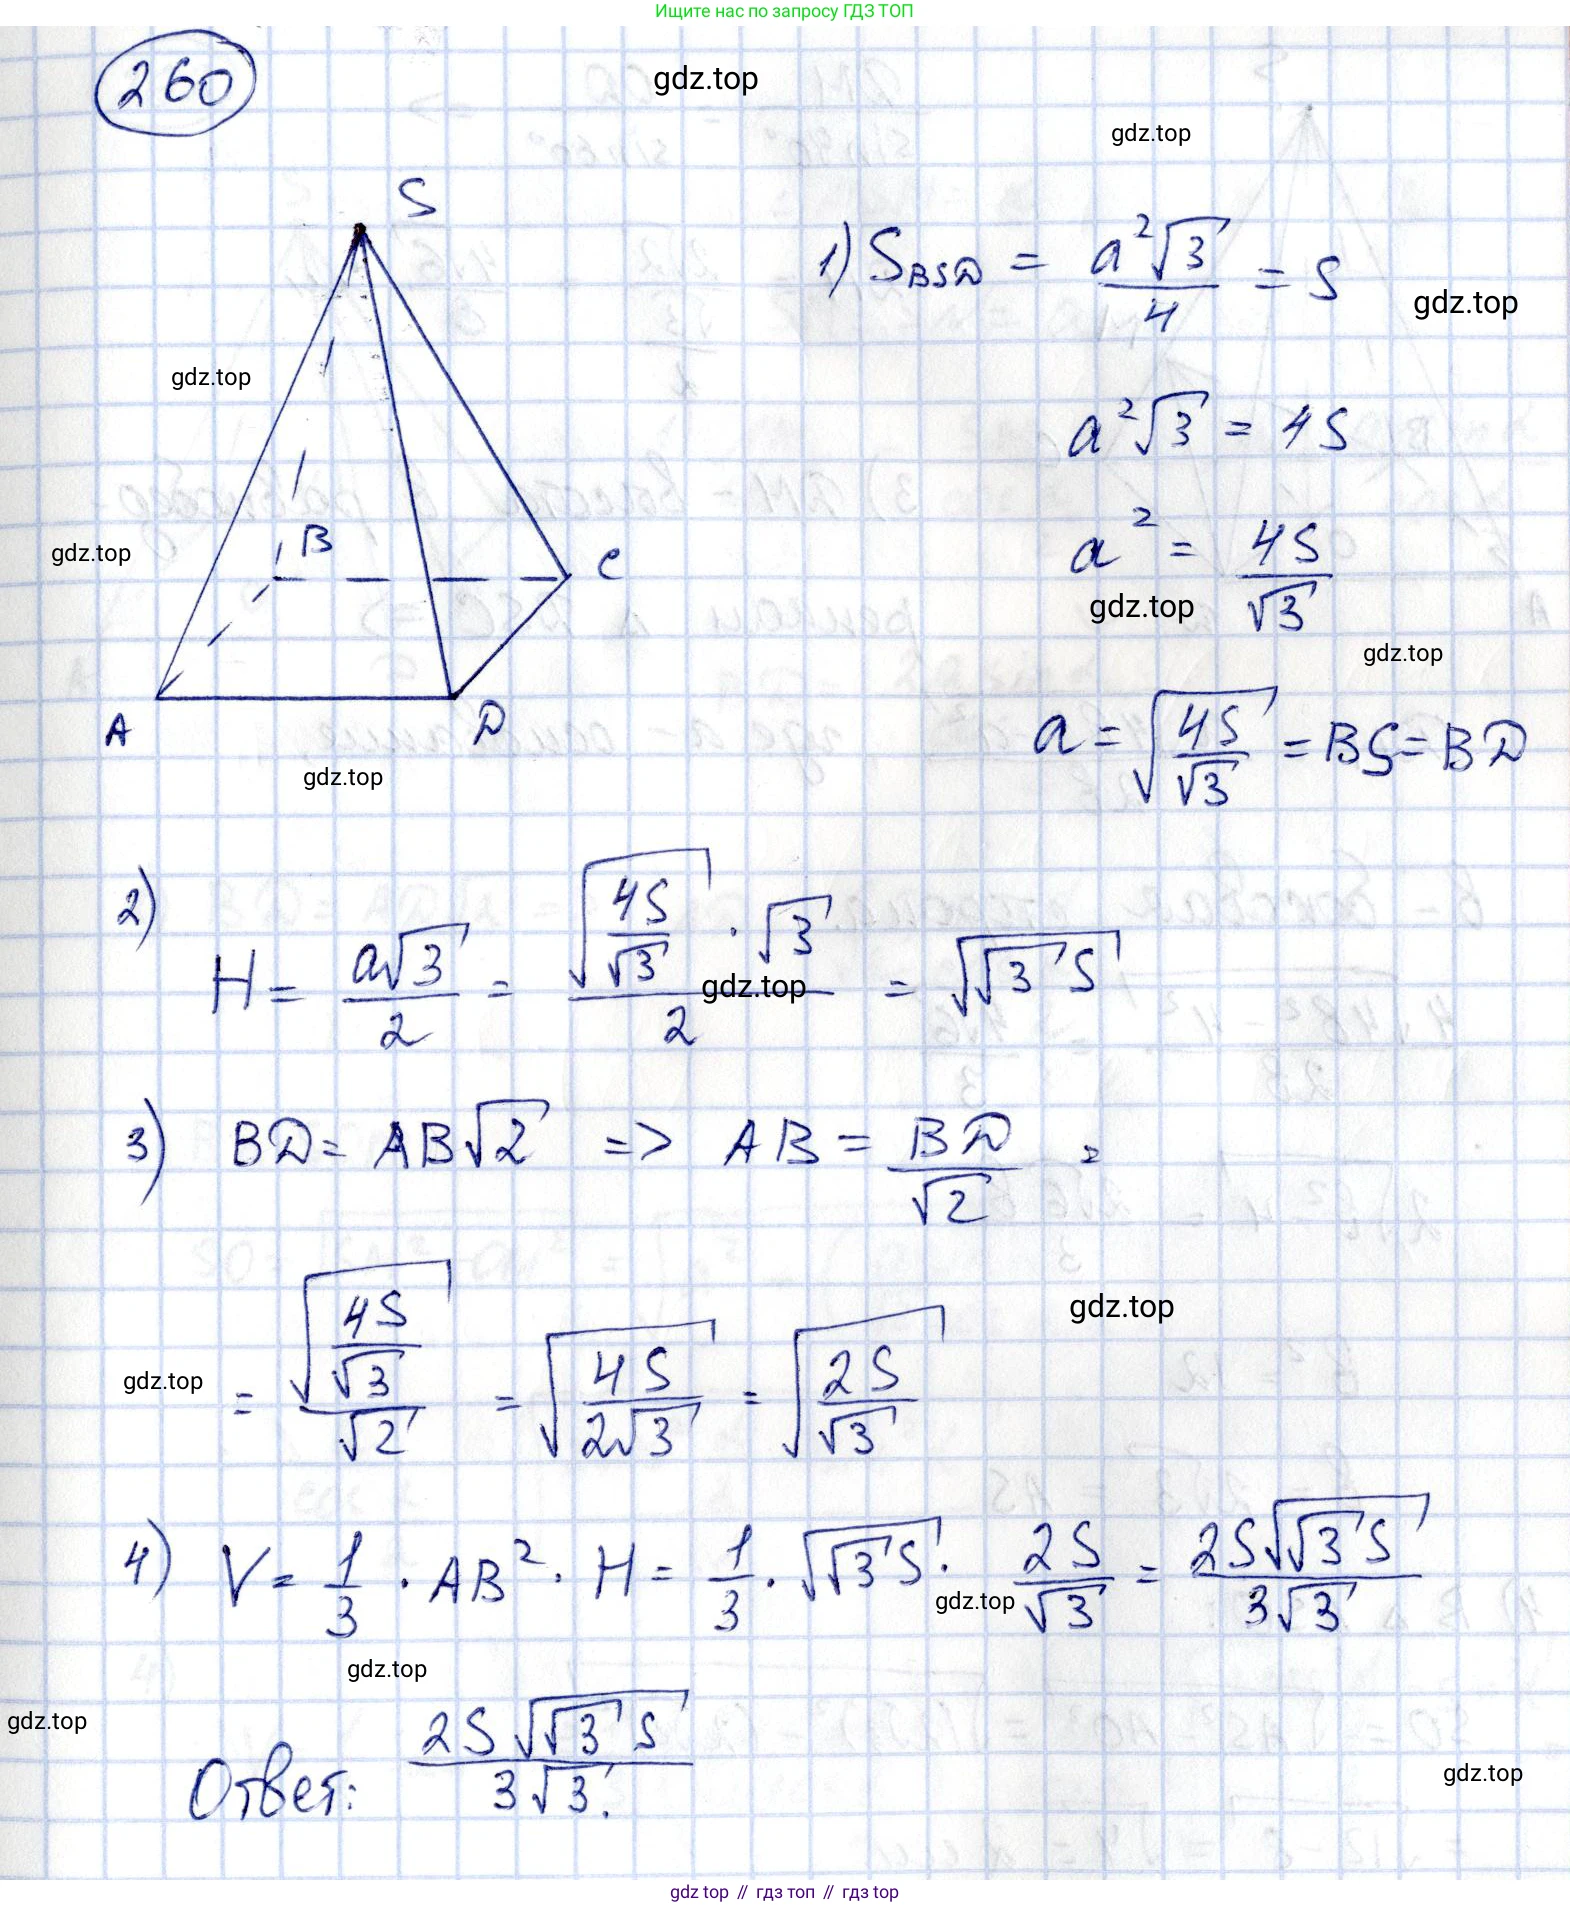 Ищите нас по запросу ГДЗ ТОП
260
gdz.top
gdz.top
S
1) S_BSD = a²√3/4 = S
gdz.top
gdz.top
a²√3 = 4S
B
C
gdz.top
a² = 4S/√3
gdz.top
gdz.top
A
D
a = √(4S/√3) = BS = BD
gdz.top
2) H = a√3/2 = √(4S/√3) · √3/2 = √(√3 S)
gdz.top
3) BD = AB√2 => AB = BD/√2 =
gdz.top
= √(4S/√3)/√2 = √(4S/2√3) = √(2S/√3)
gdz.top
4) V = 1/3 · AB² · H = 1/3 · √(√3 S) · 2S/√3 = 2S√(√3 S)/3√3
gdz.top
gdz.top
gdz.top
Ответ: 2S√(√3 S)/3√3.
gdz.top
gdz top // гдз топ // гдз top